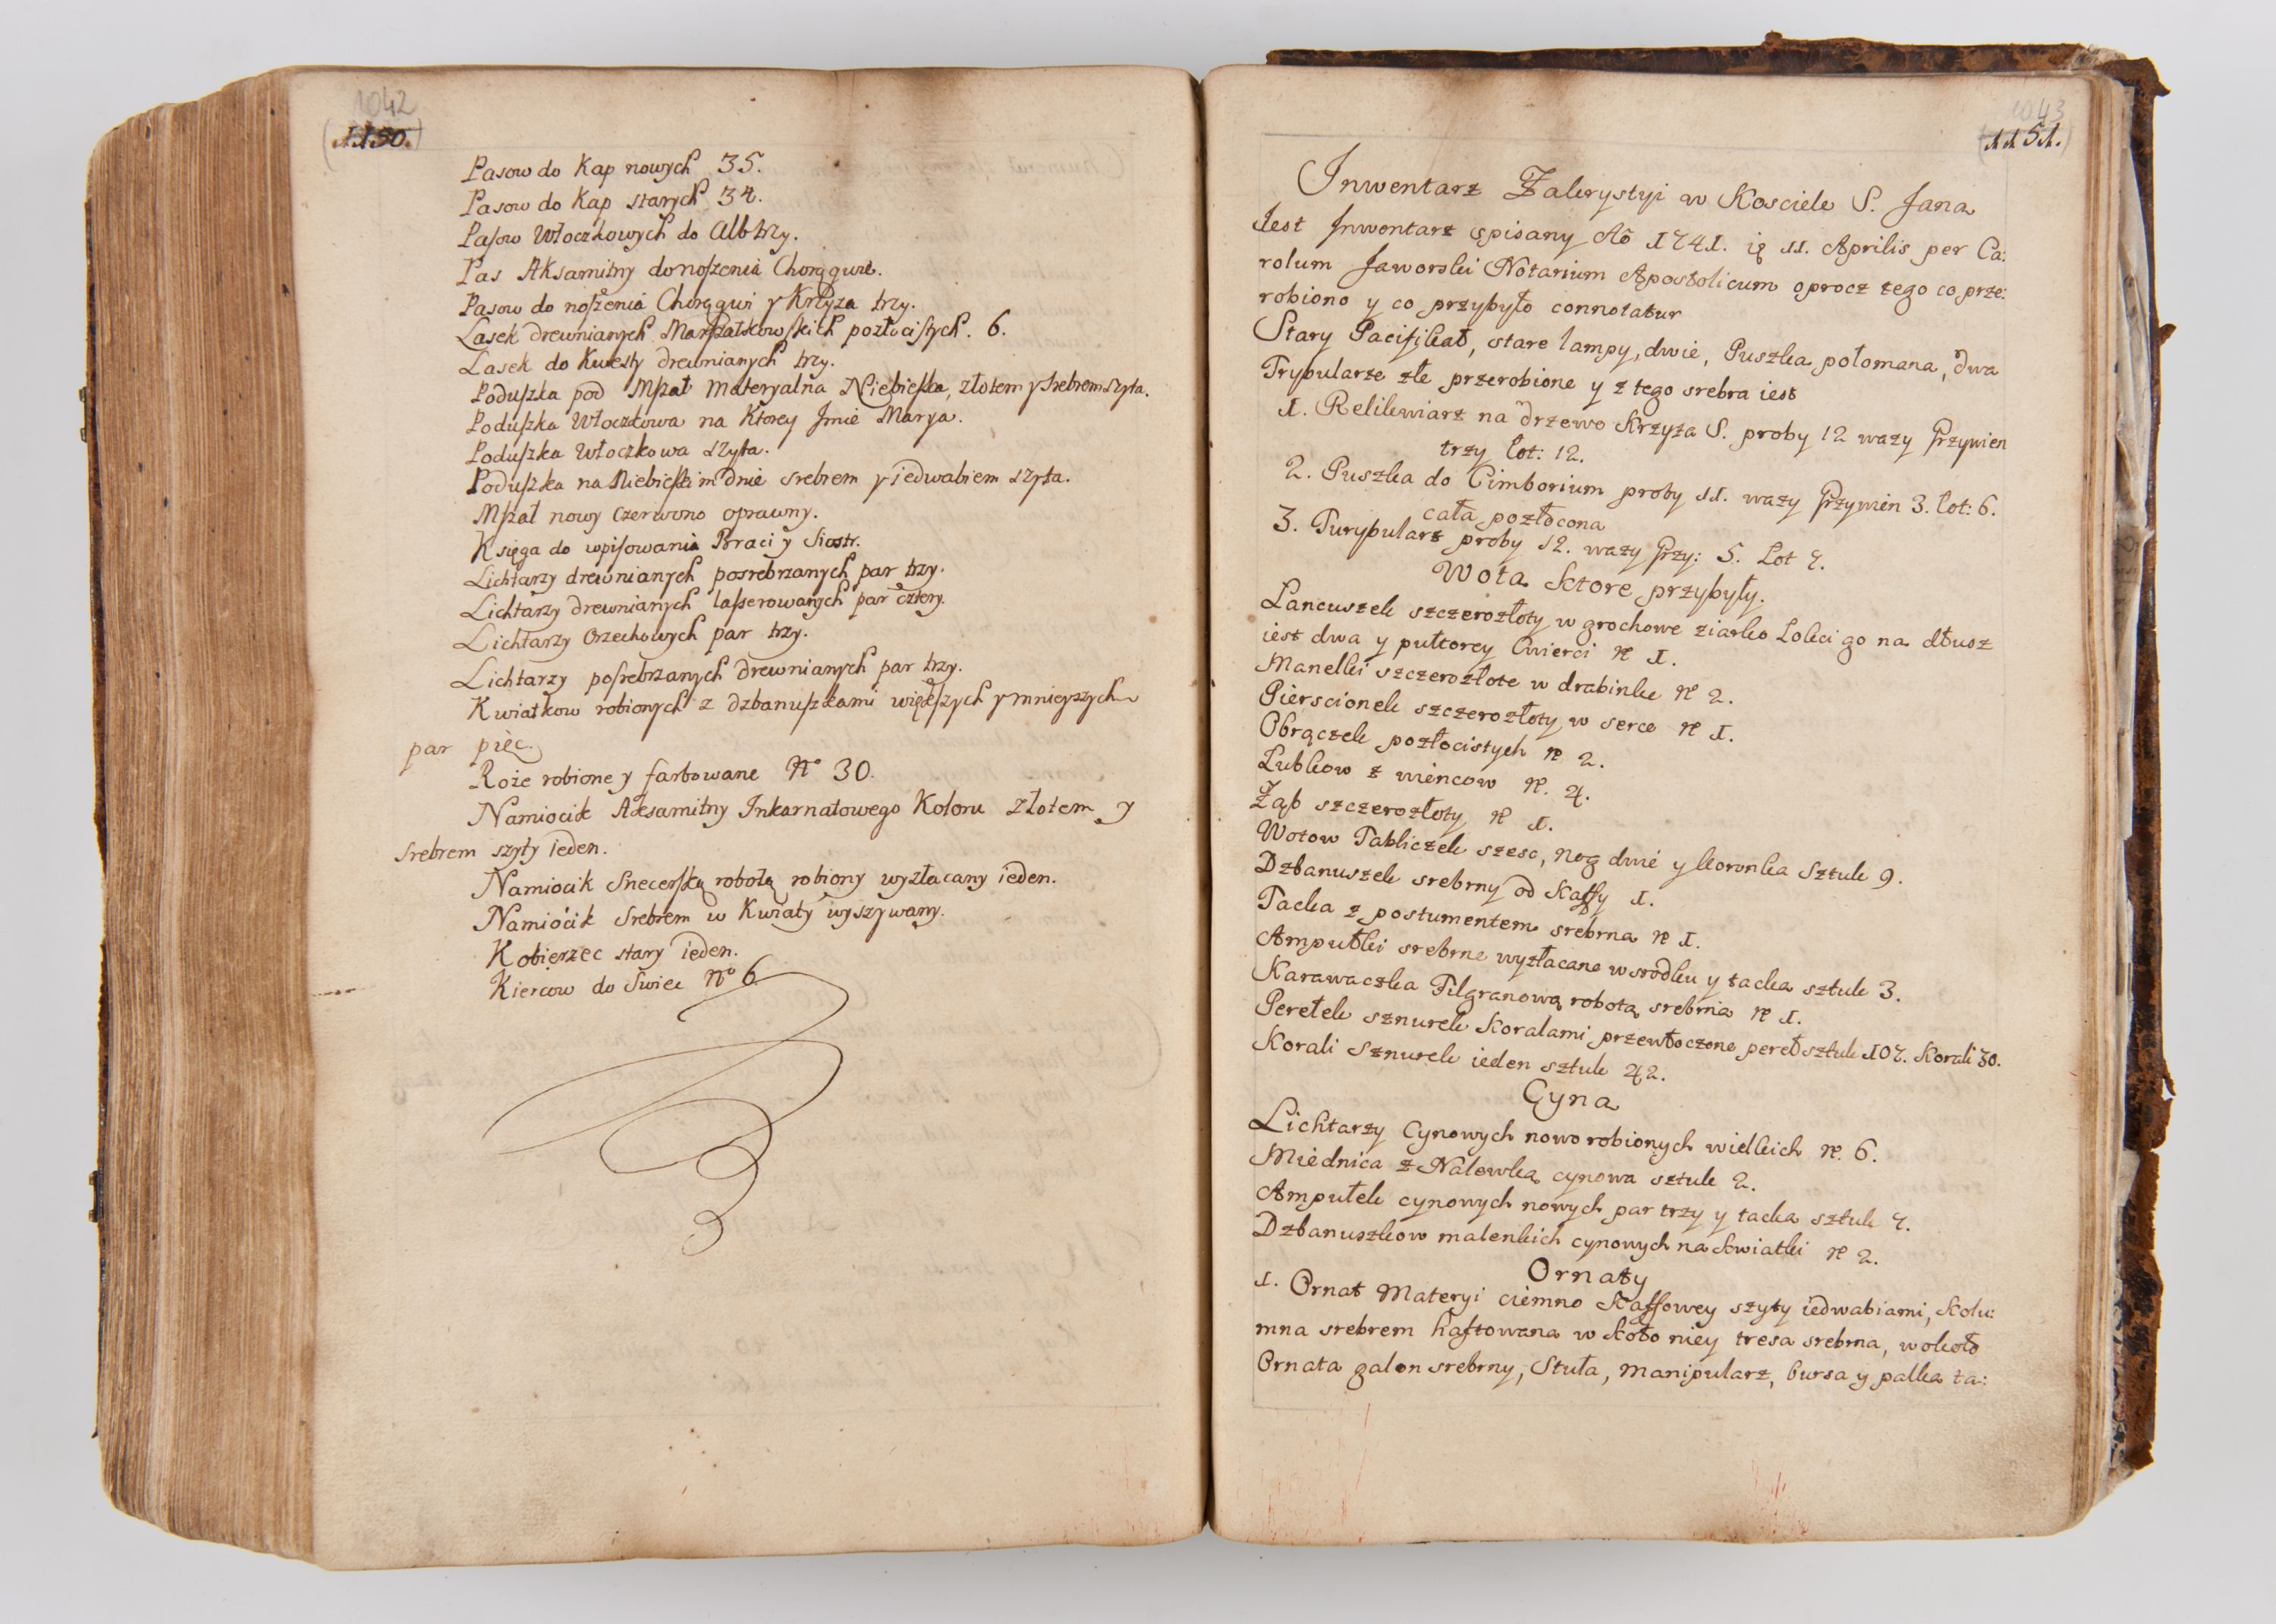 1042
(1150.)
Pasow do Kap nowych 35.
Pasow do Kap starych 34.
Pasow Włoczkowych do Alb trzy.
Pas Aksamitny do noszenia Chorągwie.
Pasow do noszenia Chorągwi y Krzyza trzy.
Lasek drewnianych Marszałkowskich pozłocistych. 6.
Lasek do Kwesty drewnianych trzy.
Poduszka pod Mszał materyalna Niebieska, złotem y srebrem szyta.
Poduszka Włoczkowa na Ktorey Jmie Marya.
Poduszka Włoczkowa szyta.
Poduszka na Niebieskim dnie srebrem y iedwabiem szyta.
Mszał nowy Czerwono oprawny.
Księga do wpisowania Braci y Siostr.
Lichtarzy drewnianych posrebrzanych par trzy.
Lichtarzy drewnianych laserowanych par cztery.
Lichtarzy Orzechowych par trzy.
Lichtarzy posrebrzanych drewnianych par trzy.
Kwiatkow robionych z dzbanuszkami większych y mnieyszych
par pięc.
Roże robione y farbowane No 30.
Namiocik Aksamitny Inkarnatowego Koloru złotem y
srebrem szyty ieden.
Namiocik Snecerską robotą robiony wyzłacany ieden.
Namiocik srebrem w Kwiaty wyszywany.
Kobierzec stary ieden.
Kiercow do Swiec No 6
1043
(1151.)
Inwentarz Zakrystyi w Kosciele S. Jana
Jest Jnwentarz spisany Ao 1741. ię 11. Aprilis per Ca:
rolum Jaworski Notarium Apostolicum oprocz tego co prze:
robiono y co przybyło connotatur
Stary Pacifikał, stare lampy, dwie, Puszka połomana, dwa
Trybularze złe przerobione y z tego srebra iest
1. Relikwiarz na drzewo Krzyża S. proby 12 wazy Grzywien
trzy Łot: 12.
2. Puszka do Cimborium proby 11. wazy Grzywien 3. łot: 6.
cała pozłocona
3. Turybularz proby 12. wazy Grzy: 5. Lot 7.
Wota Ktore przybyły.
Lancuszek szczerozłoty w grochowe ziarko Łokci go na dłusz
iest dwa y pułtorey Cwierci N 1.
Manelki szczerozłote w drabinke N 2.
Pierscionek szczerozłoty w serce N 1.
Obrączek pozłocistych N 2.
Lubkow z wiencow N. 4.
Ząb szczerozłoty N 1.
Wotow Tabliczek szesc, nog dwie y koronka Sztuk 9.
Dzbanuszek srebrny od Kaffy 1.
Tacka z postumentem srebrna N 1.
Ampułki srebrne wyzłacane w srodku y tacka sztuk 3.
Karawaczka Filgranową robotą srebrna N 1.
Perełek sznurek Koralami przewłoczone pereł sztuk 107. Korali 30.
Korali Sznurek ieden sztuk 42.
Cyna
Lichtarzy Cynowych nowo robionych wielkich N. 6.
Miednica z Nalewką cynowa sztuk 2.
Ampułek cynowych nowych par trzy y tacka sztuk 7.
Dzbanuszkow malenkich cynowych na Kwiatki N 2.
Ornaty
1. Ornat Materyi ciemno Kaffowey szyty iedwabiami, Kolu:
mna srebrem haftowana w koło niey tresa srebrna, wokoło
Ornata galon srebrny, Stuła, manipularz, bursa y palka ta: